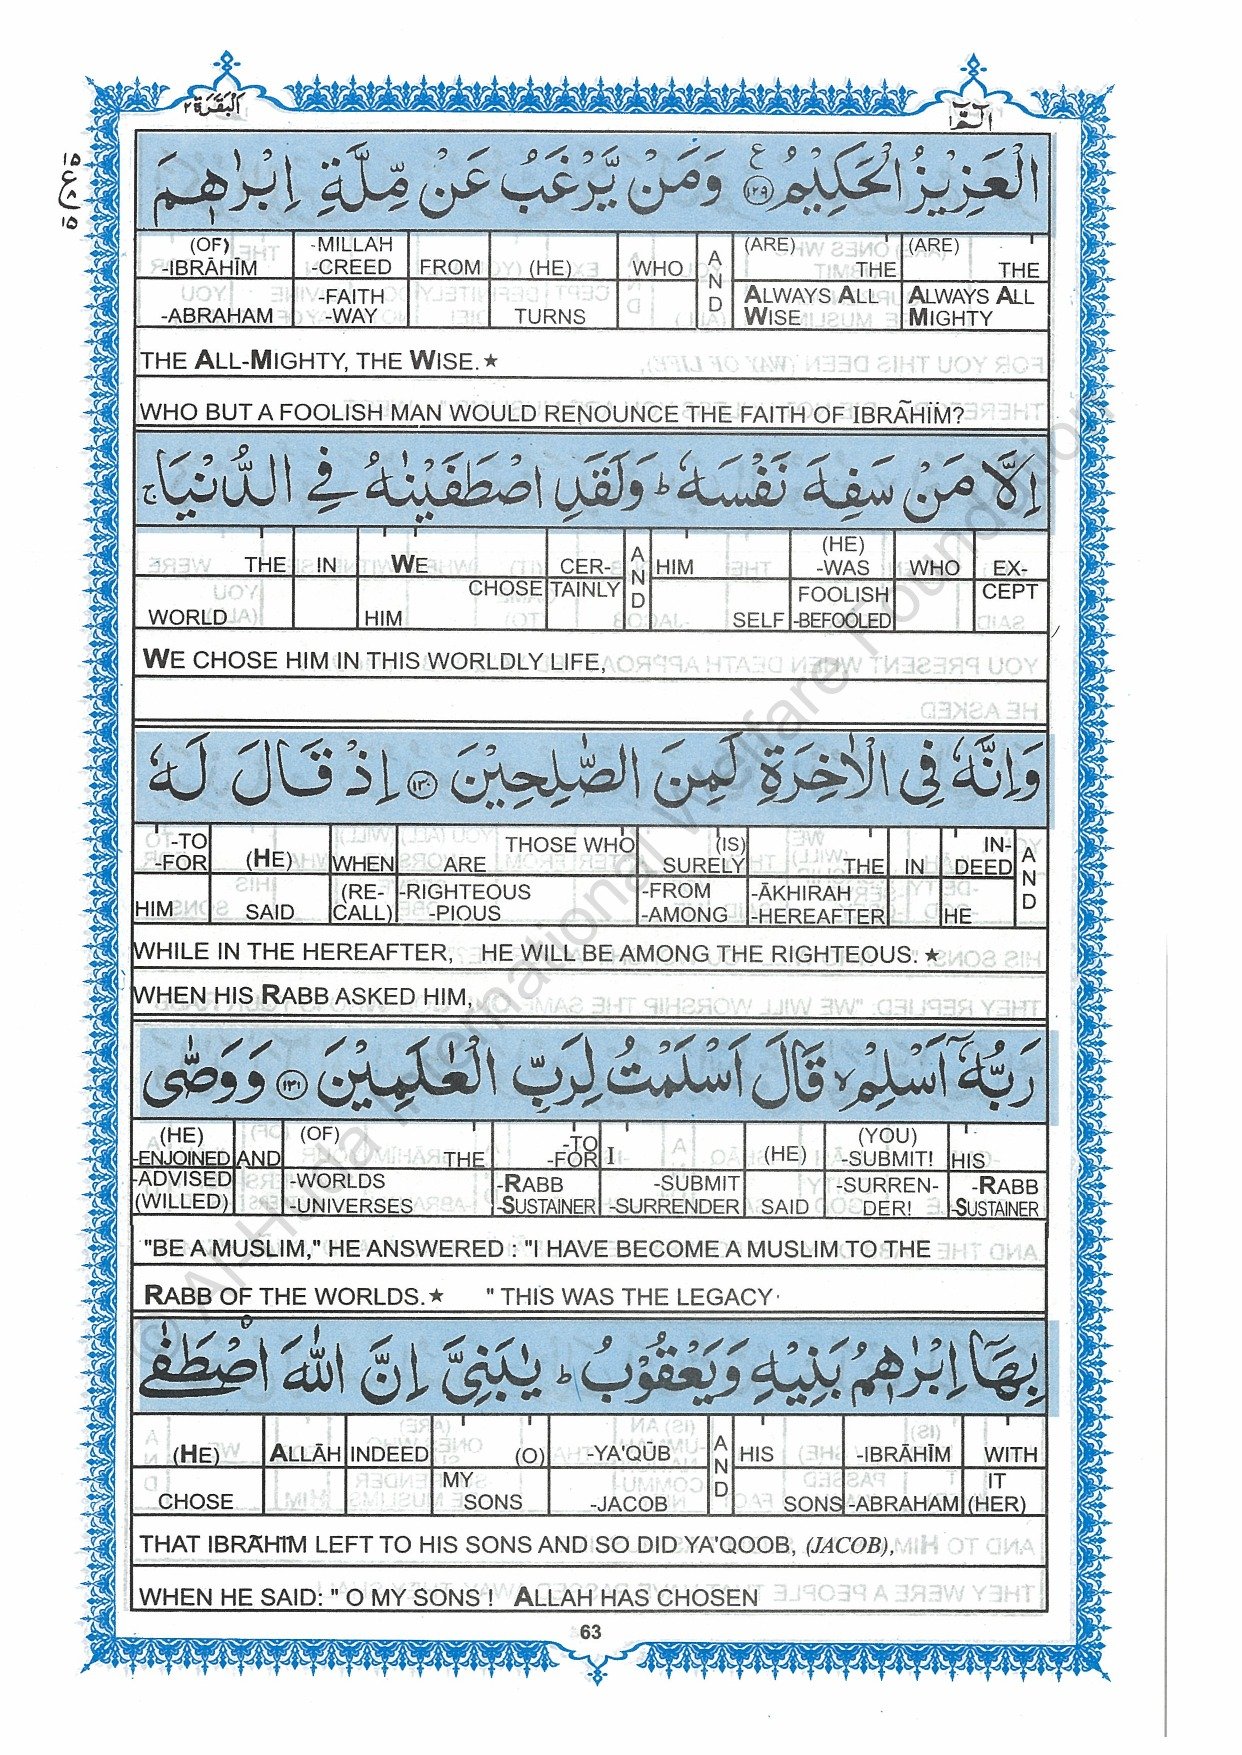 الٓمّٓ ١
اَلْبَقَرَة ٢
١٥
ع
٨
١٥
الْعَزِيْزُ الْحَكِيْمُ ١٢٩ ع وَمَنْ يَّرْغَبُ عَنْ مِّلَّةِ اِبْرٰهٖمَ
(OF) -MILLAH (ARE) (ARE)
-IBRĀHĪM -CREED FROM (HE) WHO AND THE THE
-FAITH ALWAYS ALL ALWAYS ALL
-ABRAHAM -WAY TURNS WISE MIGHTY
THE ALL-MIGHTY, THE WISE.★
WHO BUT A FOOLISH MAN WOULD RENOUNCE THE FAITH OF IBRÃHÏM?
اِلَّا مَنْ سَفِهَ نَفْسَهٗ ؕ وَلَقَدِ اصْطَفَيْنٰهُ فِي الدُّنْيَا ۚ
(HE)
THE IN WE CER- AND HIM -WAS WHO EX-
CHOSE TAINLY FOOLISH CEPT
WORLD HIM SELF -BEFOOLED
WE CHOSE HIM IN THIS WORLDLY LIFE,
وَاِنَّهٗ فِي الْاٰخِرَةِ لَمِنَ الصّٰلِحِيْنَ ١٣٠ اِذْ قَالَ لَهٗ
-TO THOSE WHO (IS) IN-
-FOR (HE) WHEN ARE SURELY THE IN DEED AND
(RE- -RIGHTEOUS -FROM -ĀKHIRAH
HIM SAID CALL) -PIOUS -AMONG -HEREAFTER HE
WHILE IN THE HEREAFTER, HE WILL BE AMONG THE RIGHTEOUS.★
WHEN HIS RABB ASKED HIM,
رَبُّهٗٓ اَسْلِمْ ۙ قَالَ اَسْلَمْتُ لِرَبِّ الْعٰلَمِيْنَ ١٣١ وَوَصّٰى
(HE) (OF) -TO (YOU)
-ENJOINED AND THE -FOR I (HE) -SUBMIT! HIS
-ADVISED -WORLDS -RABB -SUBMIT -SURREN- -RABB
(WILLED) -UNIVERSES -SUSTAINER -SURRENDER SAID DER! -SUSTAINER
"BE A MUSLIM," HE ANSWERED : "I HAVE BECOME A MUSLIM TO THE
RABB OF THE WORLDS.★ " THIS WAS THE LEGACY
بِهَآ اِبْرٰهٖمُ بَنِيْهِ وَيَعْقُوْبُ ؕ يٰبَنِيَّ اِنَّ اللّٰهَ اصْطَفٰى
(HE) ALLĀH INDEED (O) -YA'QŪB AND HIS -IBRĀHĪM WITH
MY IT
CHOSE SONS -JACOB SONS -ABRAHAM (HER)
THAT IBRÃHĪM LEFT TO HIS SONS AND SO DID YA'QOOB, (JACOB),
WHEN HE SAID: " O MY SONS ! ALLAH HAS CHOSEN
63
© Al-Huda International Welfare Foundation